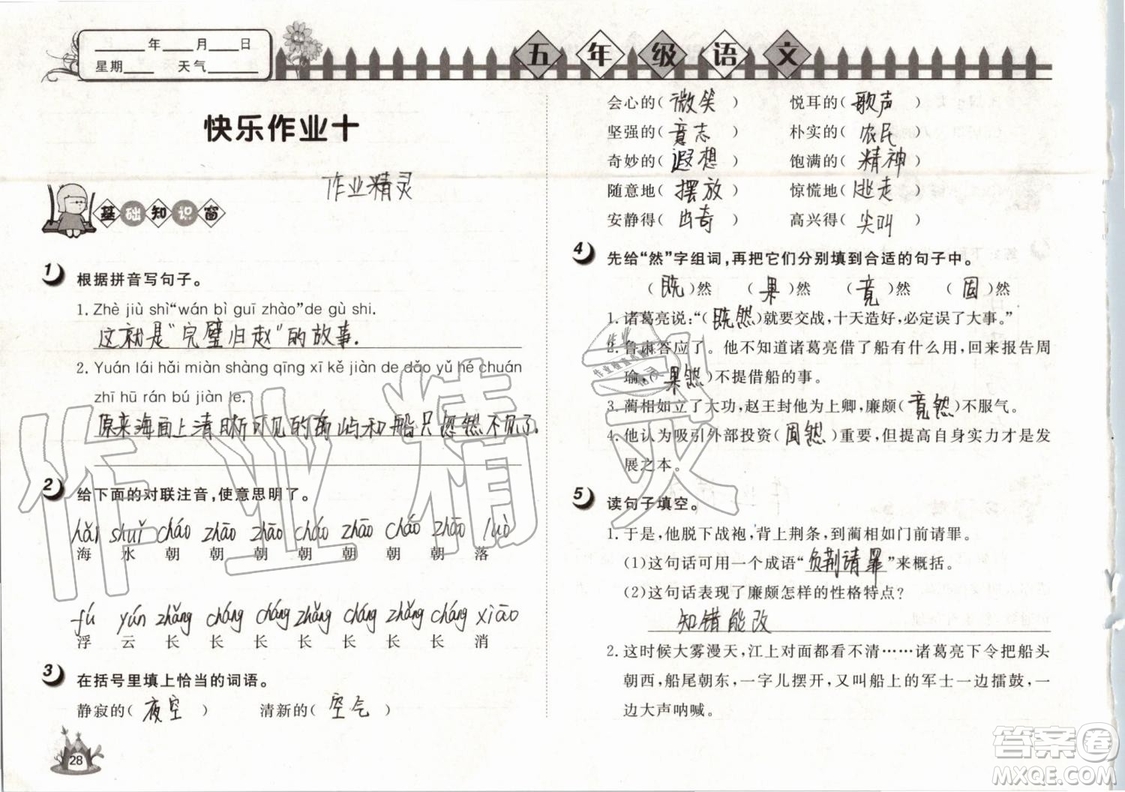 ____年____月____日
星期____ 天气________
五年级语文
快乐作业十
作业精灵
基础知识窗
1 根据拼音写句子。
1. Zhè jiù shì“wán bì guī zhào”de gù shi.
这就是“完璧归赵”的故事.
2. Yuán lái hǎi miàn shàng qīng xī kě jiàn de dǎo yǔ hé chuán
zhī hū rán bú jiàn le.
原来海面上清晰可见的岛屿和船只忽然不见了.
2 给下面的对联注音,使意思明了。
hǎi shuǐ cháo zhāo zhāo cháo zhāo cháo zhāo luò
海 水 朝 朝 朝 朝 朝 朝 朝 落
fú yún zhǎng cháng cháng zhǎng cháng zhǎng cháng xiāo
浮 云 长 长 长 长 长 长 长 消
3 在括号里填上恰当的词语。
静寂的( 夜空 ) 清新的( 空气 )
28
会心的( 微笑 ) 悦耳的( 歌声 )
坚强的( 意志 ) 朴实的( 农民 )
奇妙的( 遐想 ) 饱满的( 精神 )
随意地( 摆放 ) 惊慌地( 逃走 )
安静得( 出奇 ) 高兴得( 尖叫 )
4 先给“然”字组词,再把它们分别填到合适的句子中。
(既)然 (果)然 (竟)然 (固)然
1. 诸葛亮说:“(既然)就要交战,十天造好,必定误了大事。”
2. 鲁肃答应了。他不知道诸葛亮借了船有什么用,回来报告周
瑜,( 果然 )不提借船的事。
3. 蔺相如立了大功,赵王封他为上卿,廉颇( 竟然 )不服气。
4. 他认为吸引外部投资( 固然 )重要,但提高自身实力才是发
展之本。
5 读句子填空。
1. 于是,他脱下战袍,背上荆条,到蔺相如门前请罪。
(1)这句话可用一个成语“负荆请罪”来概括。
(2)这句话表现了廉颇怎样的性格特点?
知错能改
2. 这时候大雾漫天,江上对面都看不清……诸葛亮下令把船头
朝西,船尾朝东,一字儿摆开,又叫船上的军士一边擂鼓,一
边大声呐喊。
作业精灵
答案卷
MXQE.COM